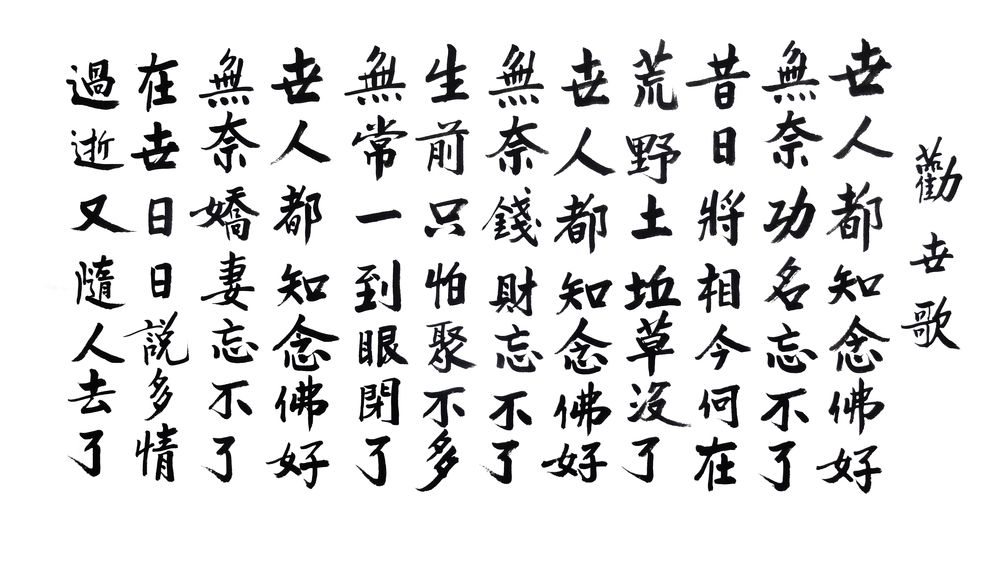 勸世歌
世人都知念佛好
無奈功名忘不了
昔日將相今何在
荒野土坵草沒了
世人都知念佛好
無奈錢財忘不了
生前只怕聚不多
無常一到眼閉了
世人都知念佛好
無奈嬌妻忘不了
在世日日說多情
過逝又隨人去了